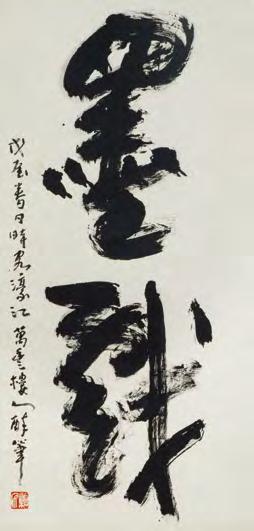 墨戲
戊辰春日時客濠江萬樓人醉筆